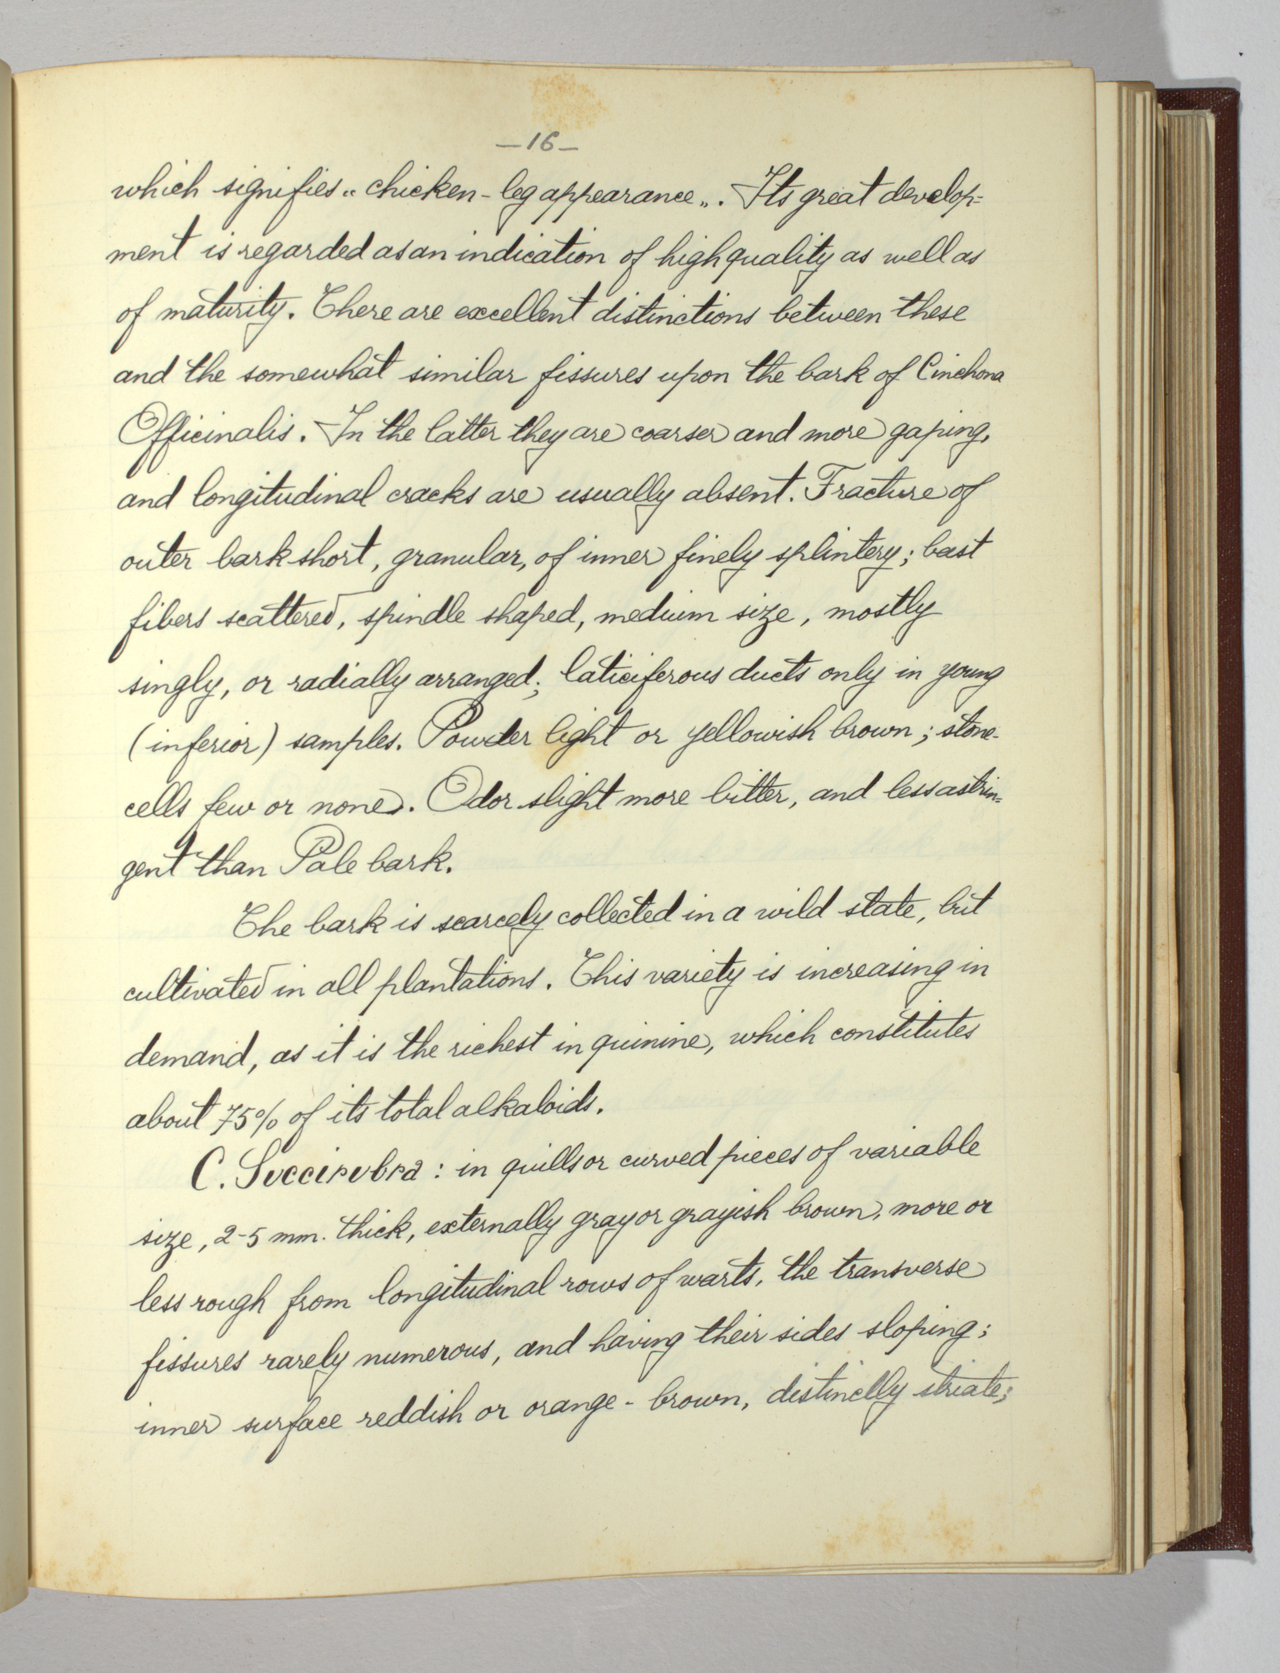 —16—
which signifies „ chicken-leg appearance „. Its great develop=
ment is regarded as an indication of high quality as well as
of maturity. There are excellent distinctions between these
and the somewhat similar fissures upon the bark of Cinchona
Officinalis. In the latter they are coarser and more gaping,
and longitudinal cracks are usually absent. Fracture of
outer bark short, granular, of inner finely splintery; bast
fibers scattered, spindle shaped, medium size, mostly
singly, or radially arranged; laticiferous ducts only in young
(inferior) samples. Powder light or yellowish brown; stone-
cells few or none. Odor slight more bitter, and less astrin=
gent than Pale bark.
The bark is scarcely collected in a wild state, but
cultivated in all plantations. This variety is increasing in
demand, as it is the richest in quinine, which constitutes
about 75% of its total alkaloids.
C. Succirubra: in quills or curved pieces of variable
size, 2-5 mm. thick, externally gray or grayish brown, more or
less rough from longitudinal rows of warts, the transverse
fissures rarely numerous, and having their sides sloping;
inner surface reddish or orange-brown, distinctly striate;